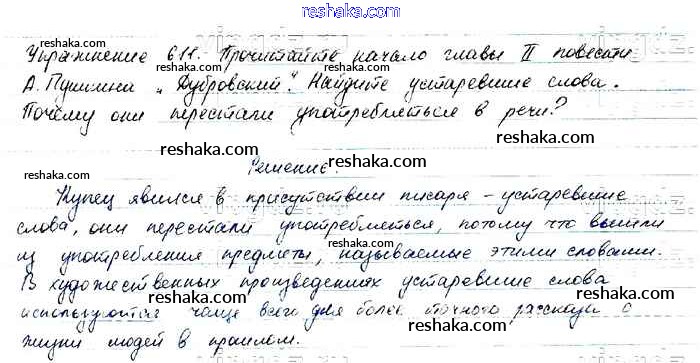 reshaka.com
Упражнение 611. Прочитайте начало главы II повести
А. Пушкина „Дубровский". Найдите устаревшие слова.
Почему они перестали употребляться в речи?
Решение.
Купец явился в присутствии писаря – устаревшие
слова, они перестали употребляться, потому что вышли
из употребления предметы, называемые этими словами.
В художественных произведениях устаревшие слова
используются чаще всего для более точного рассказа о
жизни людей в прошлом.